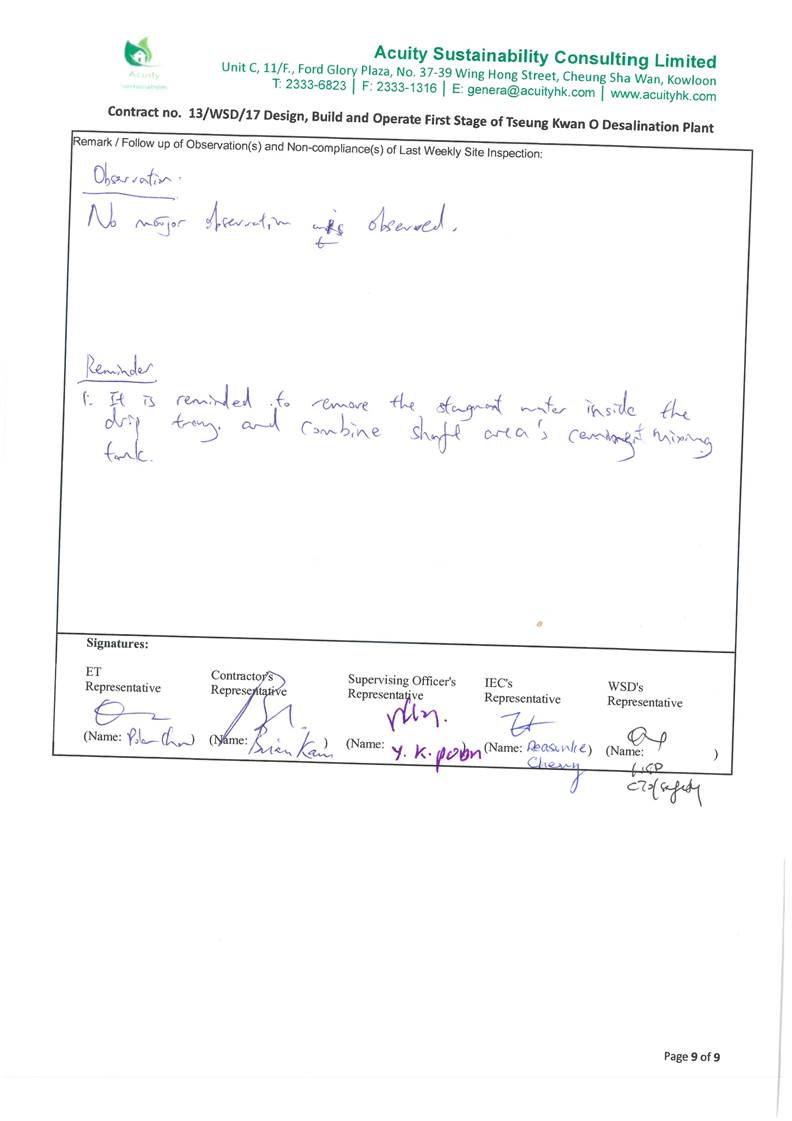 Acuity
Acuity Sustainability Consulting Limited
Unit C, 11/F., Ford Glory Plaza, No. 37-39 Wing Hong Street, Cheung Sha Wan, Kowloon
T: 2333-6823 | F: 2333-1316 | E: genera@acuityhk.com | www.acuityhk.com
Contract no. 13/WSD/17 Design, Build and Operate First Stage of Tseung Kwan O Desalination Plant
Remark / Follow up of Observation(s) and Non-compliance(s) of Last Weekly Site Inspection:
Observation.
No major observation was observed.
Reminder
1. It is reminded to remove the stagnant water inside the
drip tray. and combine shaft area's mixing
tank.
Signatures:
ET
Representative
Contractor's
Representative
Supervising Officer's
Representative
IEC's
Representative
WSD's
Representative
(Name: )
(Name: Brian Kam )
(Name: Y. K. poon
(Name: Cheng )
(Name: )
Page 9 of 9